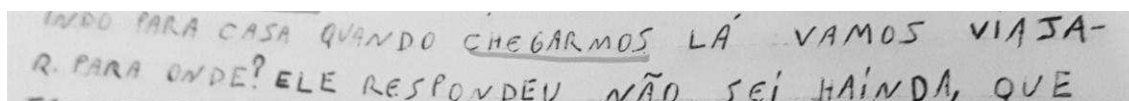 INDO PARA CASA QUANDO CHEGARMOS LÁ VAMOS VIAJA-
R. PARA ONDE? ELE RESPONDEU NÃO SEI HAINDA, QUE